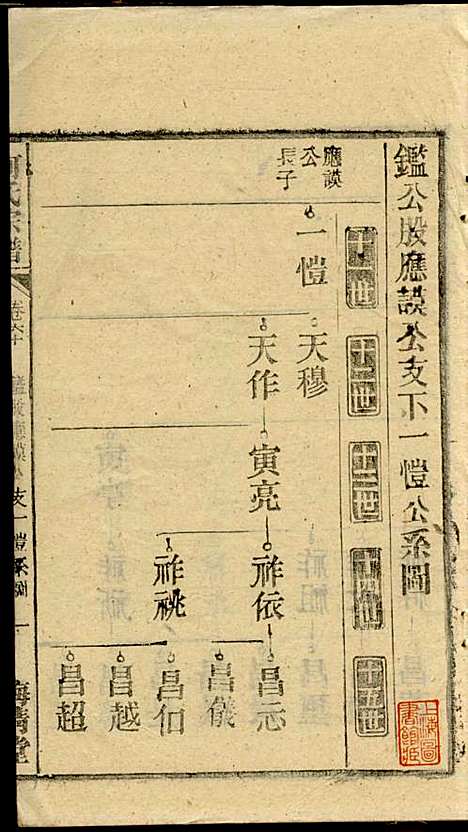 鑑公股應謨公支下一愷公系圖
十一世
十二世
十三世
十四世
十五世
應謨
公
長子
一愷
天穆
天作
寅亮
祚依
祚祧
昌示
昌儀
昌伯
昌越
昌超
氏宗譜
卷六十
鑑股應謨公支一愷系圖
一
上海圖
書館藏